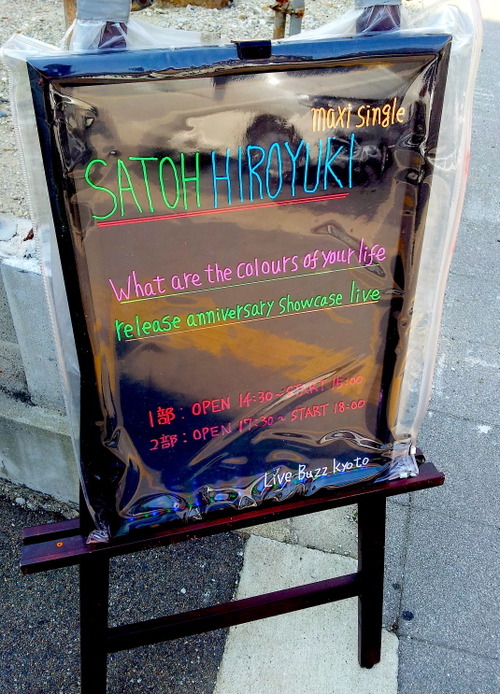 maxi single
SATOH HIROYUKI
What are the colours of your life
release anniversary showcase live
1部: OPEN 14:30~START 15:00
2部: OPEN 17:30~ START 18:00
Live Buzz kyoto